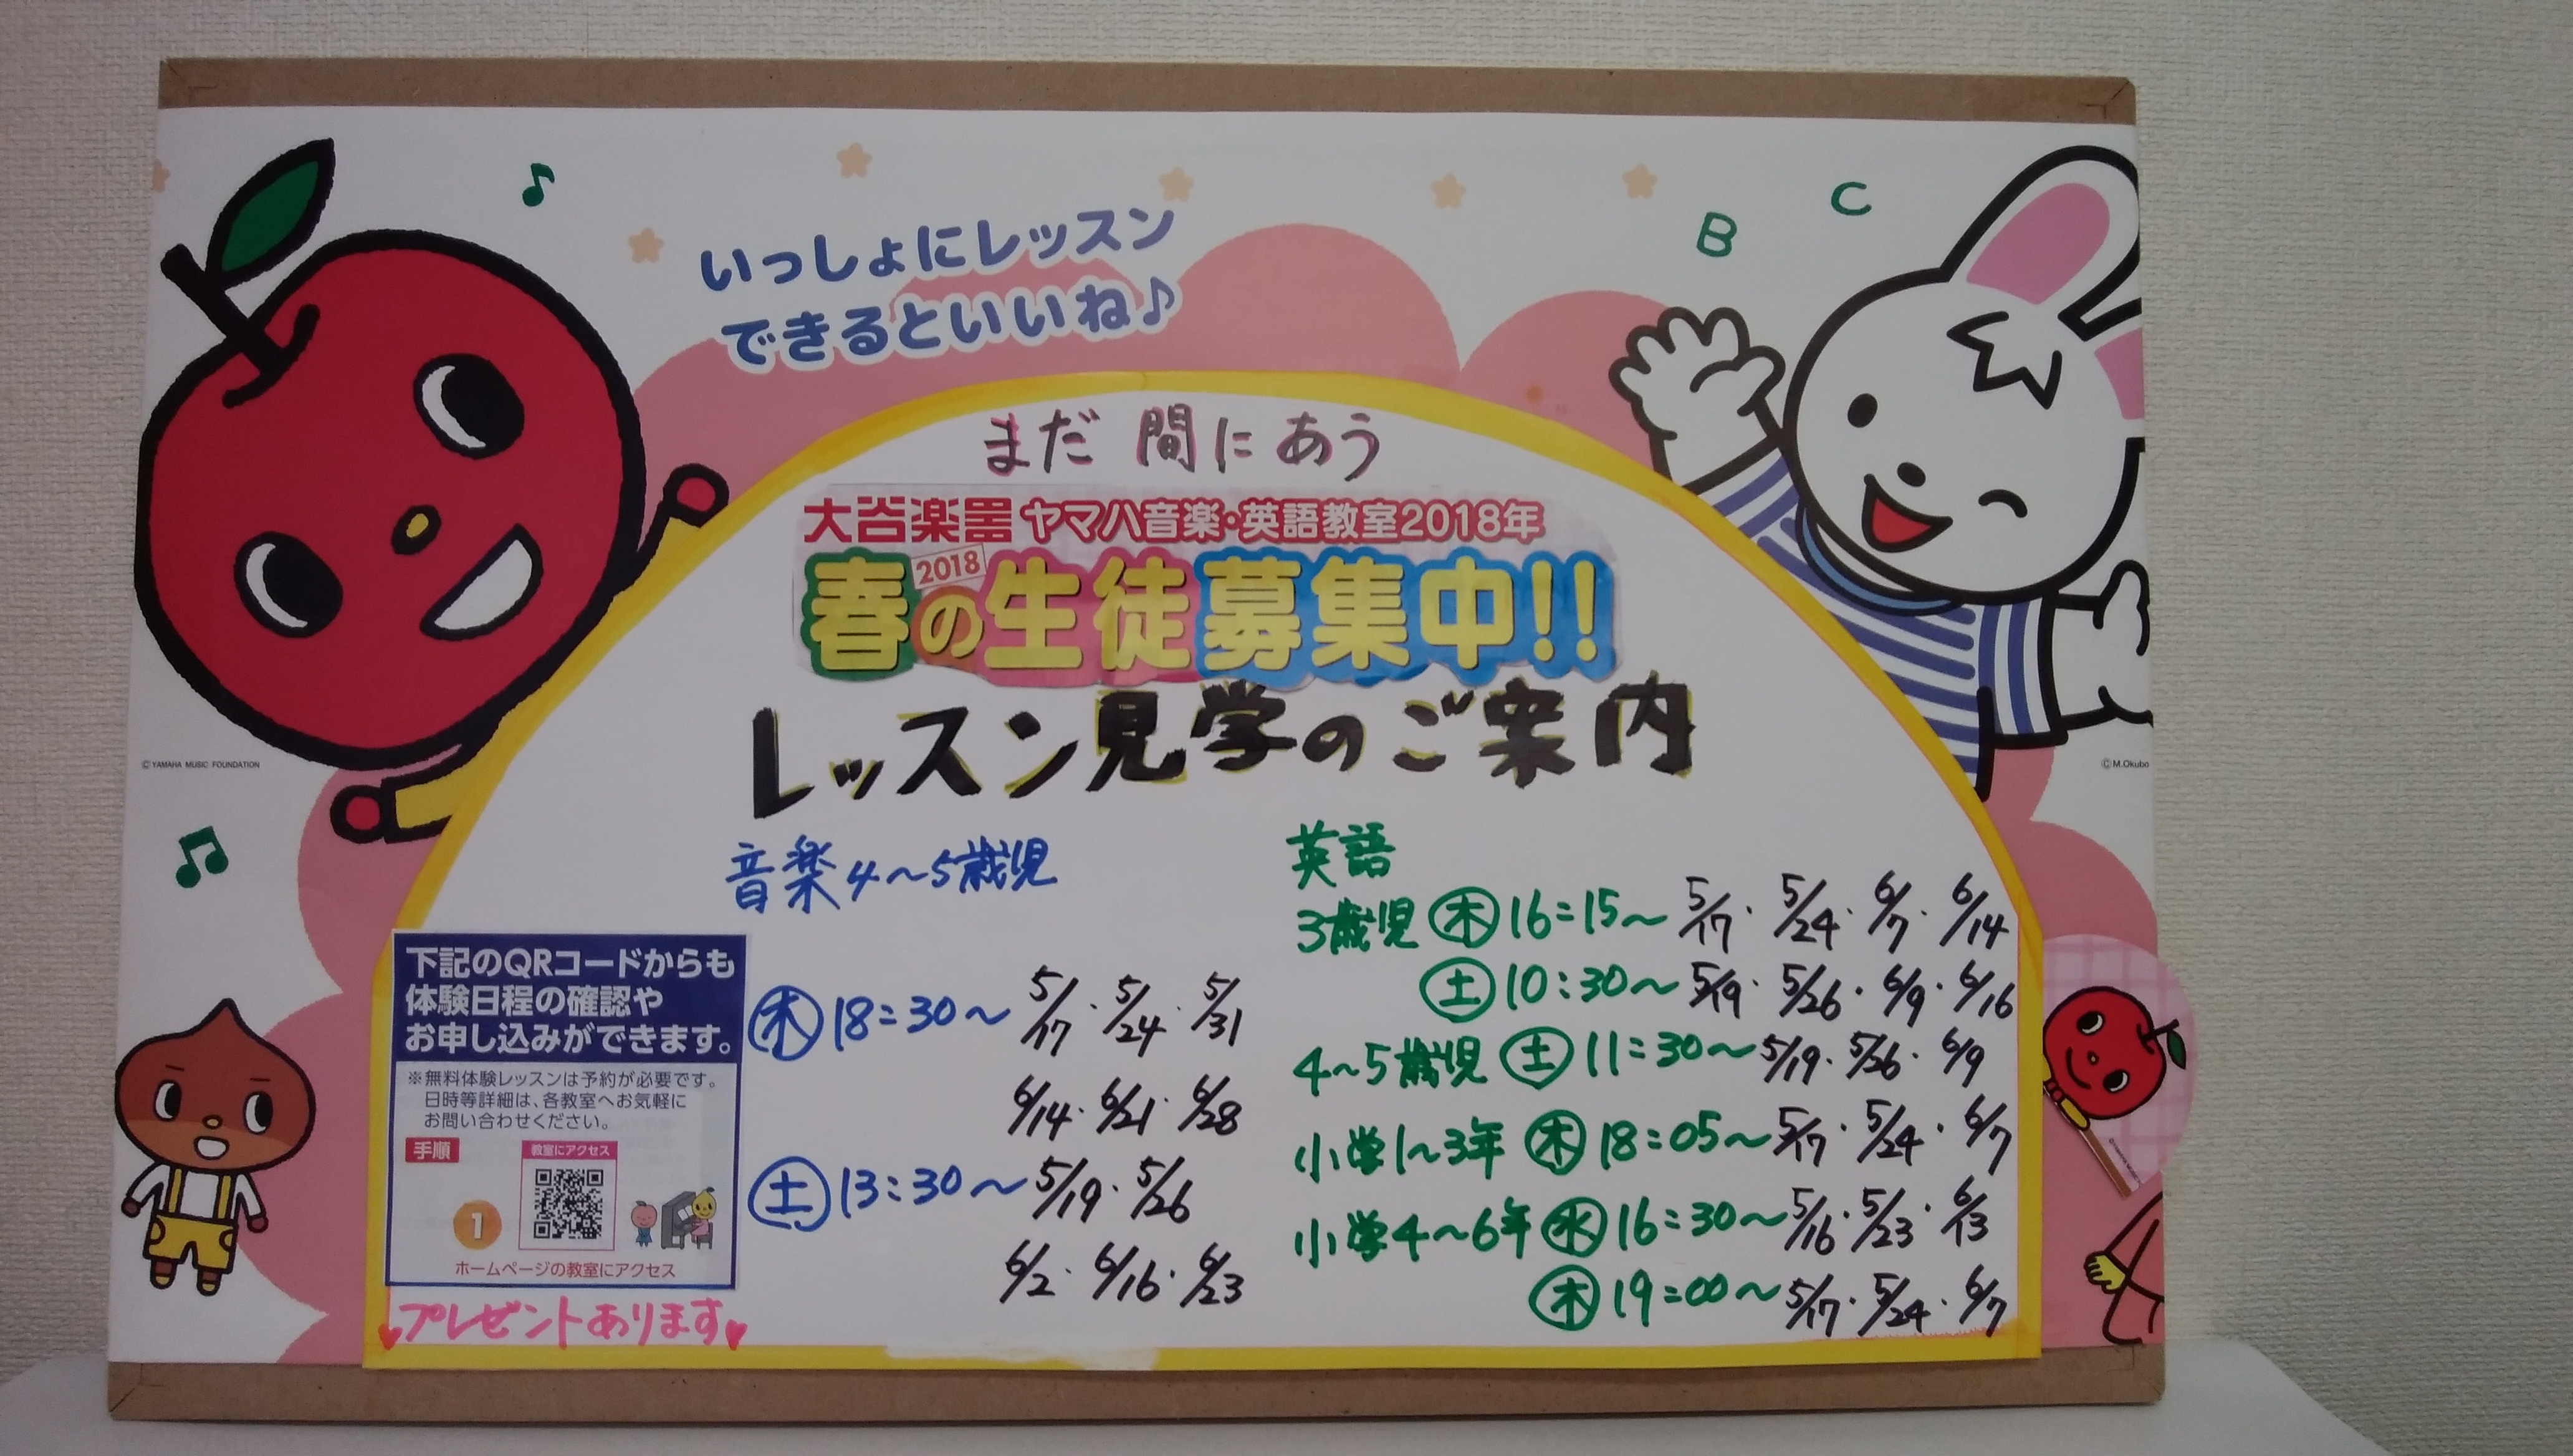 いっしょにレッスン
できるといいね♪
B C
まだ 間にあう
大谷楽器 ヤマハ音楽・英語教室2018年
2018
春の生徒募集中!!
レッスン見学のご案内
© YAMAHA MUSIC FOUNDATION
© M.Okubo
音楽 4～5歳児
木 18:30～ 5/17・5/24・5/31
6/14・6/21・6/28
土 13:30～ 5/19・5/26
6/2・6/16・6/23
英語
3歳児 木 16:15～ 5/17・5/24・6/7・6/14
土 10:30～ 5/19・5/26・6/9・6/16
4～5歳児 土 11:30～ 5/19・5/26・6/9
小学1～3年 木 18:05～ 5/17・5/24・6/7
小学4～6年 水 16:30～ 5/16・5/23・6/13
木 19:00～ 5/17・5/24・6/7
下記のQRコードからも
体験日程の確認や
お申し込みができます。
※無料体験レッスンは予約が必要です。
日時等詳細は、各教室へお気軽に
お問い合わせください。
手順
教室にアクセス
1
ホームページの教室にアクセス
プレゼントあります